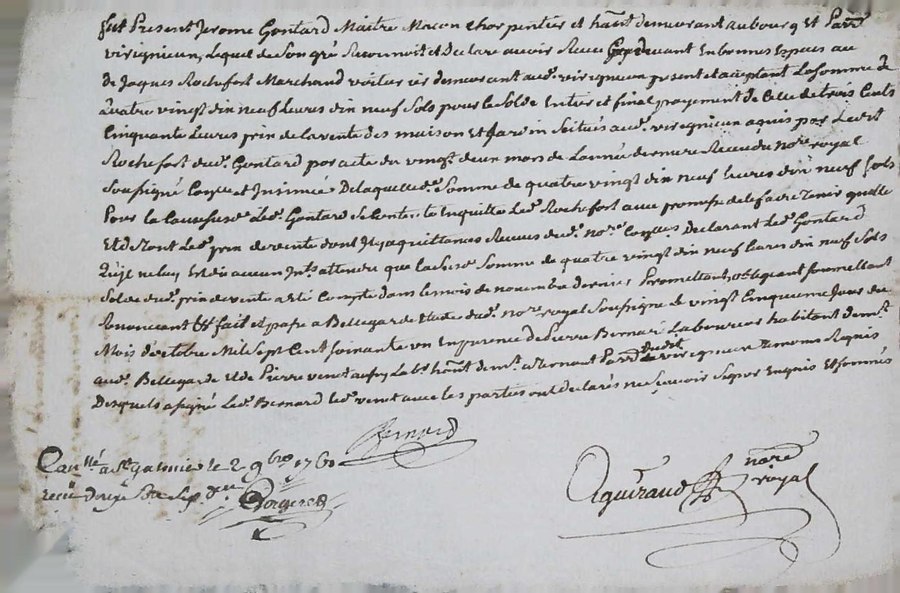 fut Present Jerome Gontard Maitre Macon Charpentier et ha.nt demeurant au bourg et Parr.e
virigneux, lequel de Son gré Reconnoit et declare avoir Receu Cy devant En bonnes Espaces au
de Jaques Rochefort Marchand voiturier demeurant aud.t virigneux present et aceptant La Somme de
Quatre vingt dix neuf Livres dix neuf Sols pour le Solde Entier et final payement de Celle de trois Cents
Cinquante Livres prix de la vente des maison et Jardin Situés aud.t virigneux aquis par Ledit
Rochefort dud.t Gontard par acte du vingt deux mars de Lannée derniere Receu du no.re royal
Soussigné Conçue et Insinuée De laquelle d.e Somme de quatre vingt dix neuf Livres dix neuf Sols
Pour la Cause Led.t Gontard Se Contente En quitte Led.t Rochefort avec promesse de le faire Tenir quitte
Et dont Led.t prix de vente dont Il y a quittances Receues dud.t no.re Declarant Led.t Gontard
Qu'il ne luy Est dû aucun Int.s attendu que Somme de quatre vingt dix neuf Livres dix neuf Sols
Solde dud.t prix de vente a été Compté dans le mois de novembre dernier Promettant obligeant Soumettant
Renonceant &c fait et passé a Bellegarde Etude dud.t no.re royal Soussigné Le vingt Cinquieme Jour du
Mois d'octobre Mil Sept Cent Soixante un En presence de Pierre Bernard Laboureur habitant dem.t
aud.t Bellegarde Et de Pierre vincent aussy Lab.r ha.nt dem.t Parr.e dudit virigneux Temoins Requis
Desquels a Signé Led.t Bernard led.t vincent avec les parties ont declarés ne Sçavoir Signer Enquis Et Sommés
Bernard
Con.llé a St Galmier le 2 9bre 1761
receu douze Sols Six d.ers
Aguiraud no.re royal